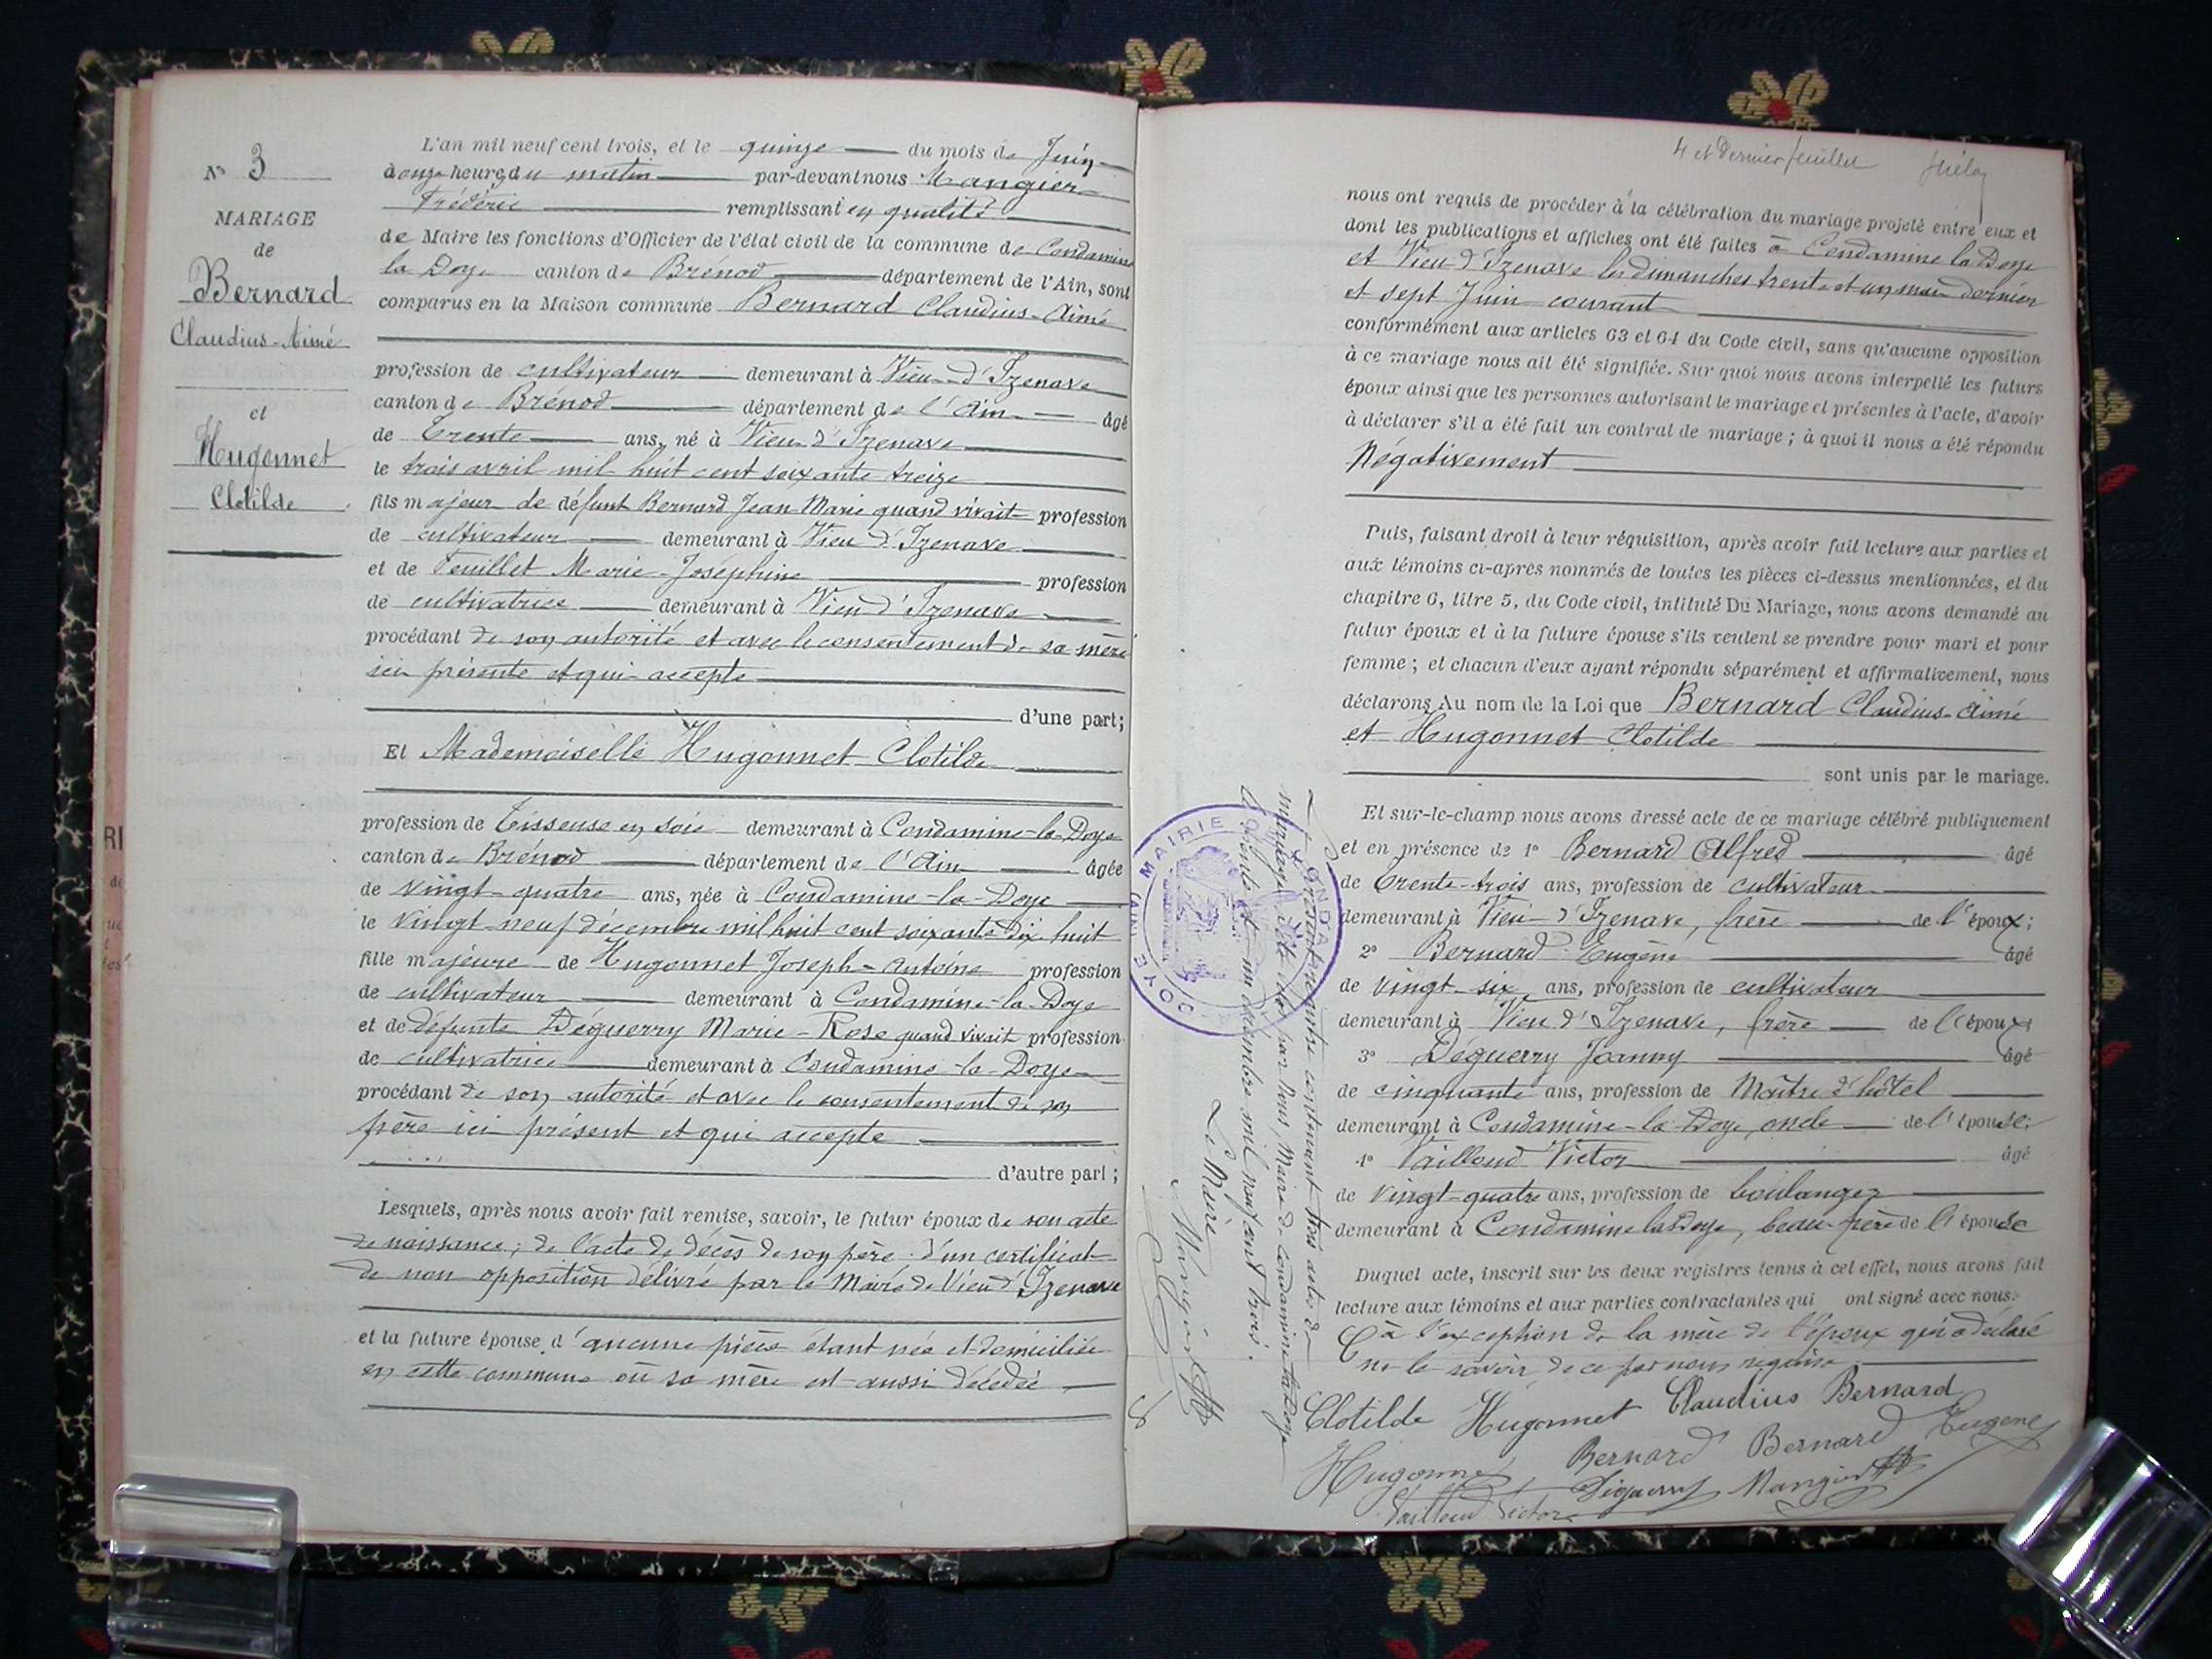 N° 3
MARIAGE
de
Bernard
Claudius-Aimé
et
Hugonnet
Clotilde
L'an mil neuf cent trois, et le quinze du mois de Juin
à onze heures du matin par-devant nous Mangier
Frédéric remplissant en qualité
de Maire les fonctions d'Officier de l'état civil de la commune de Condamine
la Doye canton de Brénod département de l'Ain, sont
comparus en la Maison commune Bernard Claudius-Aimé
profession de cultivateur demeurant à Vieu-d'Izenave
canton de Brénod département de l'Ain âgé
de Trente ans, né à Vieu d'Izenave
le trois avril mil huit cent soixante treize
fils majeur de défunt Bernard Jean Marie quand vivait profession
de cultivateur demeurant à Vieu d'Izenave
et de Feuillet Marie-Joséphine profession
de cultivatrice demeurant à Vieu d'Izenave
procédant de son autorité et avec le consentement de sa mère
ici présente et qui accepte
d'une part;
Et Mademoiselle Hugonnet Clotilde
profession de Tisseuse en soie demeurant à Condamine-la-Doye
canton de Brénod département de l'Ain âgée
de vingt-quatre ans, née à Condamine-la-Doye
le vingt-neuf décembre mil huit cent soixante dix-huit
fille majeure de Hugonnet Joseph-Antoine profession
de cultivateur demeurant à Condamine-la-Doye
et de défunte Déguerry Marie-Rose quand vivait profession
de cultivatrice demeurant à Condamine-la-Doye
procédant de son autorité et avec le consentement de son
père ici présent et qui accepte
d'autre part;
Lesquels, après nous avoir fait remise, savoir, le futur époux de son acte
de naissance; de l'acte de décès de son père d'un certificat
de non opposition délivré par le Maire de Vieu d'Izenave
et la future épouse d'aucune pièce étant née et domiciliée
en cette commune où sa mère est aussi décédée
4 et Dernier feuillet
nous ont requis de procéder à la célébration du mariage projeté entre eux et
dont les publications et affiches ont été faites à Condamine la Doye
et Vieu d'Izenave les dimanches trente et un mai dernier
et sept Juin courant
conformément aux articles 63 et 64 du Code civil, sans qu'aucune opposition
à ce mariage nous ait été signifiée. Sur quoi nous avons interpellé les futurs
époux ainsi que les personnes autorisant le mariage et présentes à l'acte, d'avoir
à déclarer s'il a été fait un contrat de mariage; à quoi il nous a été répondu
Négativement
Puis, faisant droit à leur réquisition, après avoir fait lecture aux parties et
aux témoins ci-après nommés de toutes les pièces ci-dessus mentionnées, et du
chapitre 6, titre 5, du Code civil, intitulé Du Mariage, nous avons demandé au
futur époux et à la future épouse s'ils veulent se prendre pour mari et pour
femme; et chacun d'eux ayant répondu séparément et affirmativement, nous
déclarons Au nom de la Loi que Bernard Claudius-Aimé
et Hugonnet Clotilde
sont unis par le mariage.
Et sur-le-champ nous avons dressé acte de ce mariage célébré publiquement
et en présence de 1° Bernard Alfred âgé
de Trente-trois ans, profession de cultivateur
demeurant à Vieu-d'Izenave, frère de l'époux;
2° Bernard Eugène âgé
de vingt-six ans, profession de cultivateur
demeurant à Vieu d'Izenave, frère de l'époux
3° Déguerry Joanny âgé
de cinquante ans, profession de Maître d'hôtel
demeurant à Condamine-la-Doye, oncle de l'épouse;
4° Vailloud Victor âgé
de vingt-quatre ans, profession de boulanger
demeurant à Condamine la Doye, beau-frère de l'épouse
Duquel acte, inscrit sur les deux registres tenus à cet effet, nous avons fait
lecture aux témoins et aux parties contractantes qui ont signé avec nous.
à l'exception de la mère de l'époux qui a déclaré
ne le savoir de ce par nous requise
Clotilde Hugonnet Claudius Bernard
Bernard Bernard Eugène
Hugonnet Déguerry Mangier
Vailloud Victor
Le présent registre contenant trois actes de
mariage a été clos par nous, Maire de Condamine la Doye
le trente et un décembre mil neuf cent trois.
Le Maire
Mangier
MAIRIE DE CONDAMINE LA DOYE (AIN)